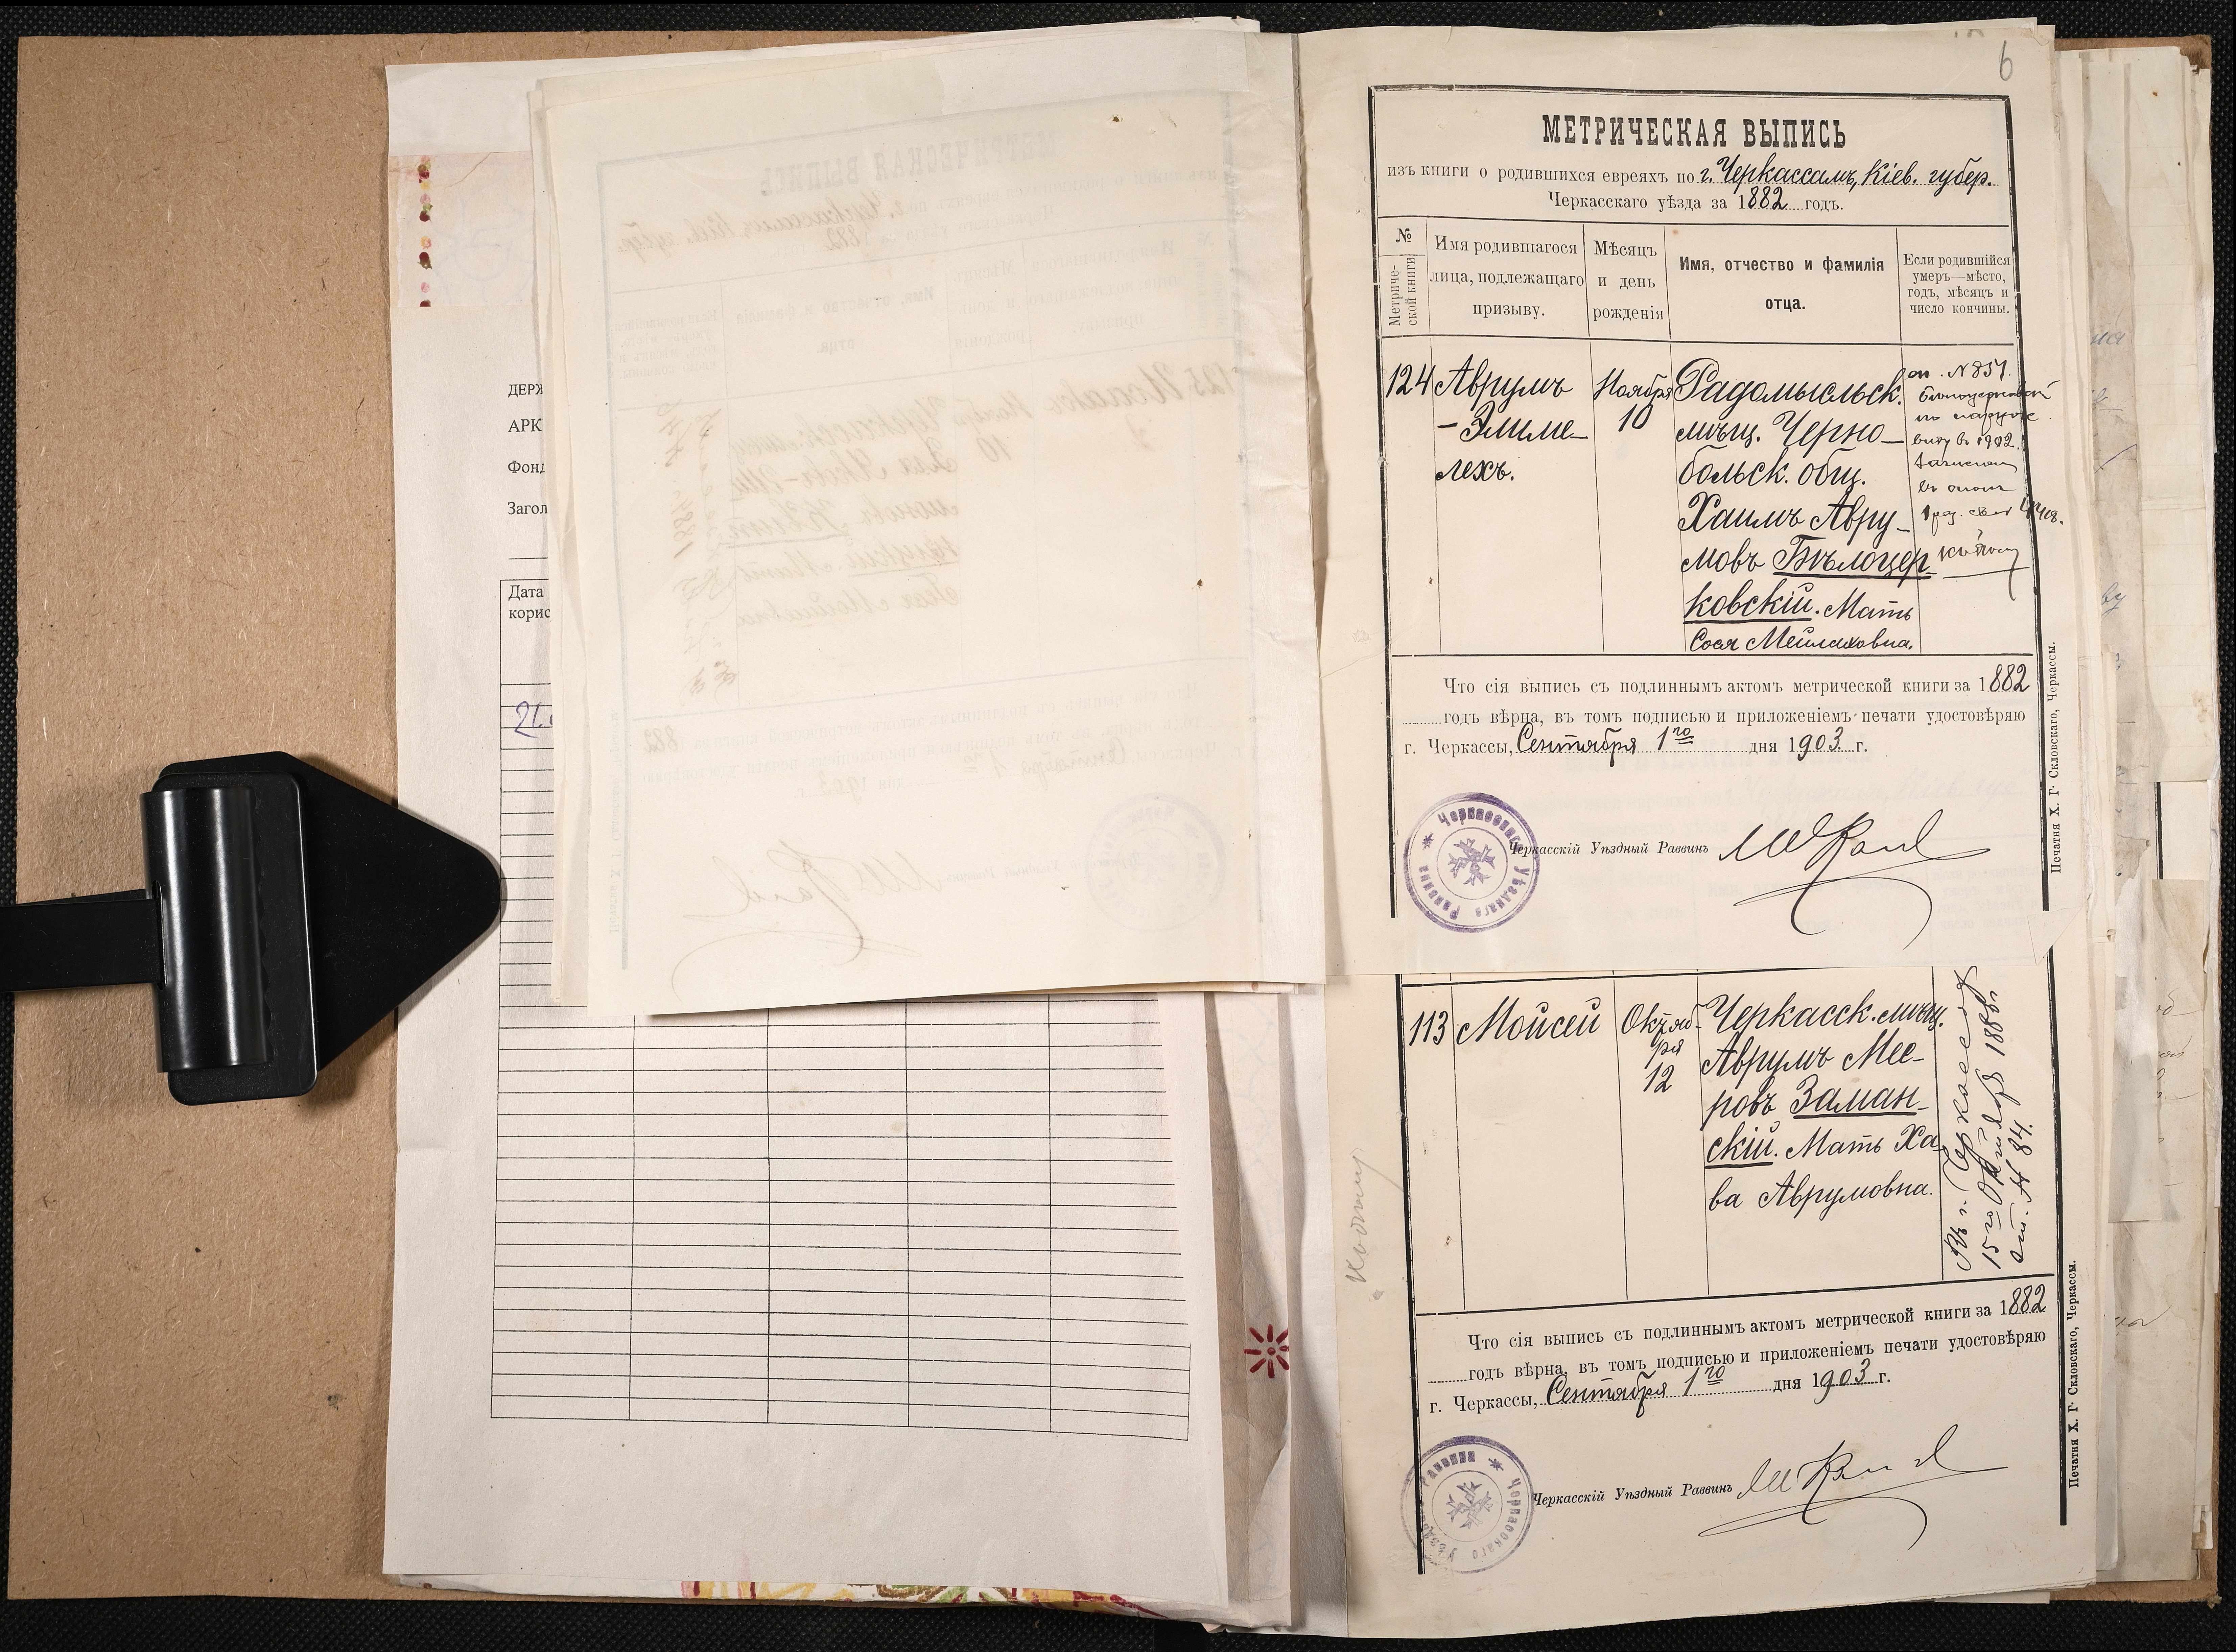 ДЕРЖ
АРК
Фонд
Загол
Дата
корис
21.
6
МЕТРИЧЕСКАЯ ВЫПИСЬ
изъ книги о родившихся евреяхъ по г. Черкассамъ, Кіев. губер.
Черкасскаго уѣзда за 1882 годъ.
№
Метриче-
ской книги
Имя родившагося
лица, подлежащаго
призыву.
Мѣсяцъ
и день
рожденія
Имя, отчество и фамилія
отца.
Если родившійся
умеръ—мѣсто,
годъ, мѣсяцъ и
число кончины.
124
Аврумъ
-Элиме-
лехъ.
Ноября
10
Радомысльск.
мѣщ. Черно-
больск. общ.
Хаимъ Авру-
мовъ Бѣлоцер-
ковскій. Мать
Сося Мейлаховна.
№ 857.
по наруж
виду въ 1902.
Что сія выпись съ подлиннымъ актомъ метрической книги за 1882
годъ вѣрна, въ томъ подписью и приложеніемъ печати удостовѣряю
г. Черкассы, Сентября 1го дня 1903 г.
Черкасскаго Уѣзднаго Раввина
Черкасскій Уѣздный Раввинъ
Печатня Х. Г. Скловскаго, Черкассы.
113
Мойсей
Октяб-
ря
12
Черкасск. мѣщ.
Аврумъ Мее-
ровъ Заман-
скій. Мать Ха-
ва Аврумовна.
Въ г. Черкассахъ
15го Октября 1886 г.
№ 84.
Что сія выпись съ подлиннымъ актомъ метрической книги за 1882
годъ вѣрна, въ томъ подписью и приложеніемъ печати удостовѣряю
г. Черкассы, Сентября 1го дня 1903 г.
Черкасскаго Уѣзднаго Раввина
Черкасскій Уѣздный Раввинъ
Печатня Х. Г. Скловскаго, Черкассы.